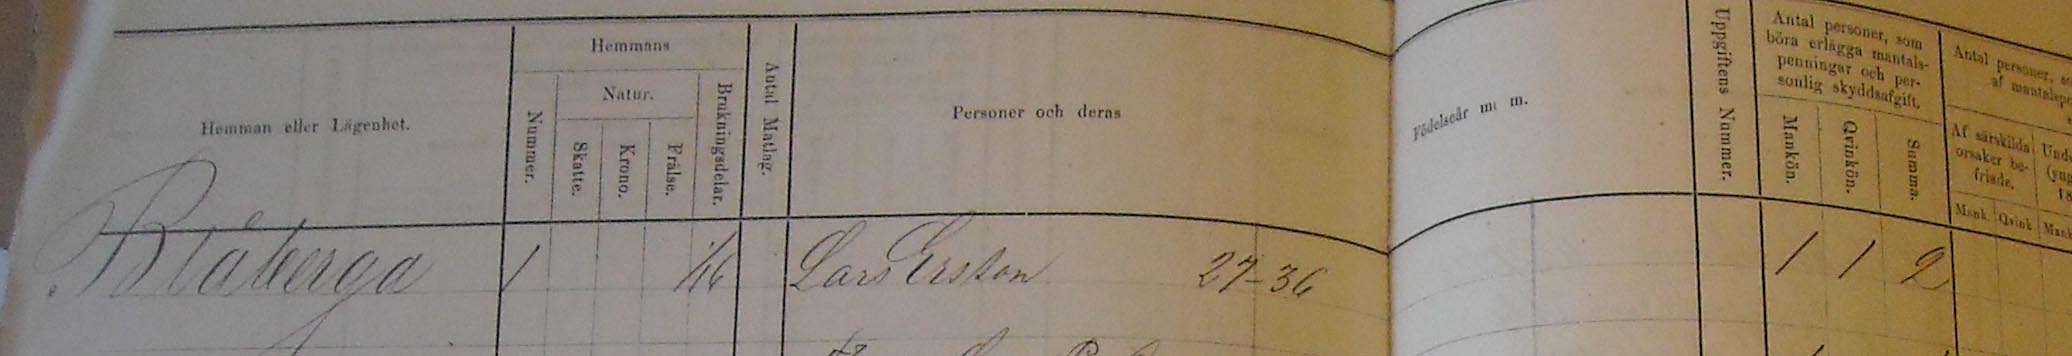 Hemman eller Lägenhet.
Hemmans
Nummer.
Natur.
Skatte.
Krono.
Frälse.
Brukningsdelar.
Antal Matlag.
Personer och deras
Födelseår m. m.
Uppgiftens Nummer.
Antal personer, som
böra erlägga mantals-
penningar och per-
sonlig skyddsafgift.
Mankön.
Qvinkön.
Summa.
Antal personer,
af
Af särskilda
orsaker be-
friade.
Mank. Qvink
Mank
Blåberga 1 1/16 Lars Ersson 27-36 1 1 2